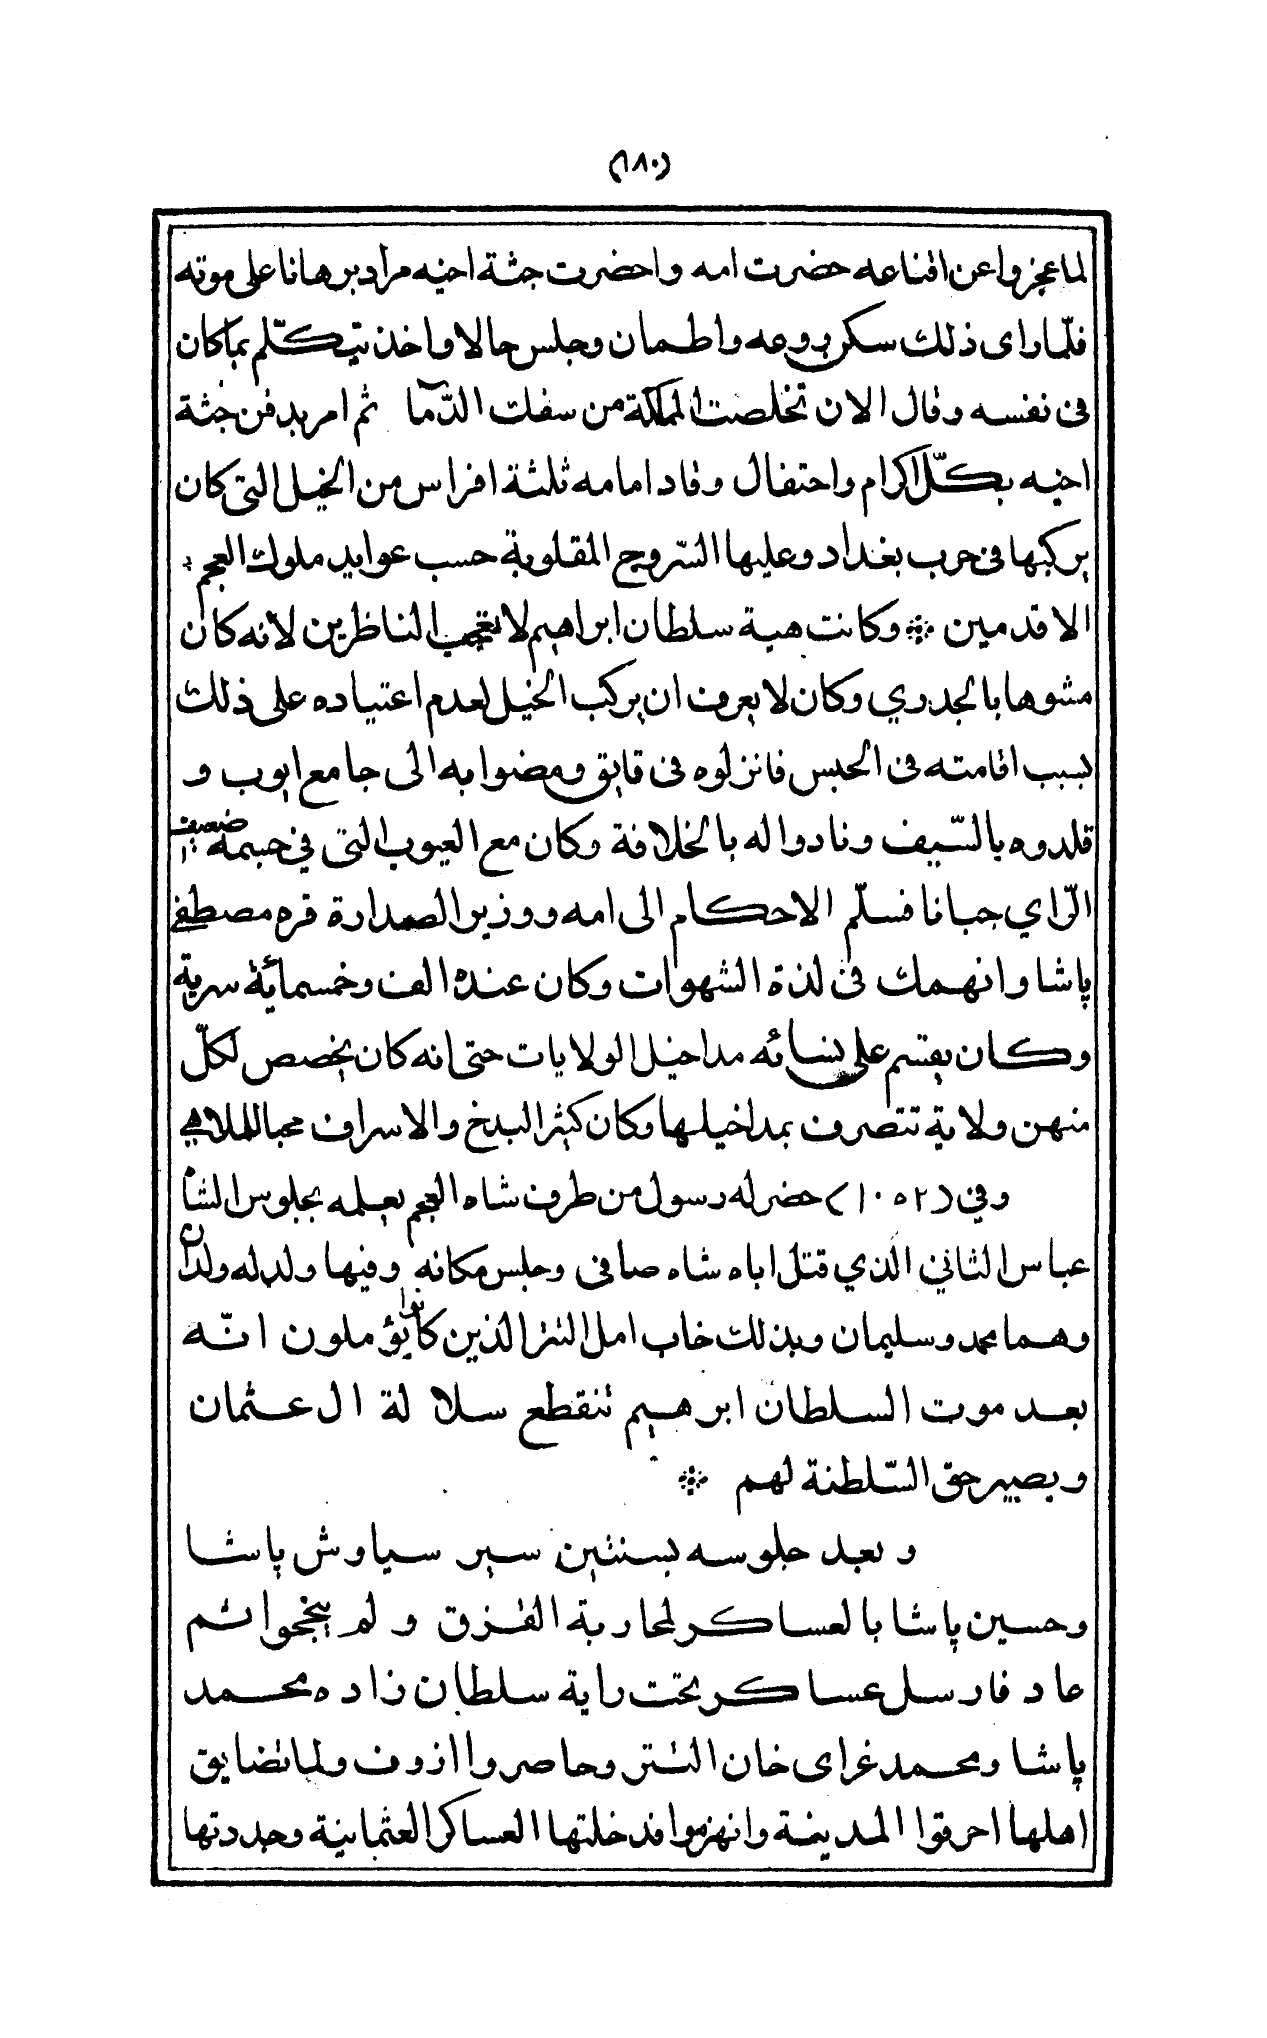 (١٨٠)
لما عجزوا عن اقناعه حضرت امه واحضرت جثة اخيه مراد برهانا على موته
فلّما راى ذلك سكن روعه واطمان وجلس حالا واخذ يتكّلم بما كان
فى نفسه وقال الان تخلصت المملكة من سفك الدّما ثم امر بدفن جثة
اخيه بكّل اكرام واحتفال وقاد امامه ثلثة افراس من الخيل التى كان
يركبها فى حرب بغداد وعليها السّروج المقلوبة حسب عوايد ملوك العجم
الاقدمين * وكانت هيبة سلطان ابراهيم لا تعجب الناظرين لانه كان
مشوها بالجدري وكان لا يعرف ان يركب الخيل لعدم اعتياده على ذلك
بسبب اقامته فى الحبس فانزلوه فى قايق ومضوا به الى جامع ايوب و
قلدوه بالسّيف ونادوا له بالخلافة وكان مع العيوب التى في جسمه ضعيف
الرّاي جبانا فسلّم الاحكام الى امه ووزير الصدارة قره مصطفى
پاشا وانهمك فى لذة الشهوات وكان عنده الف وخمسماية سرية
وكان يقسم على نسائه مداخيل الولايات حتى انه كان يخصص لكلّ
منهن ولاية تتصرف بمداخيلها وكان كثير البدخ والاسراف محبا للملاهي
وفي (١٠٥٢) حضر له رسول من طرف شاه العجم يعلمه بجلوس الشاه
عباس الثاني الذي قتل اباه شاه صافى وجلس مكانه وفيها ولد له ولدان
وهما محمد وسليمان وبذلك خاب امل التتر الذين كانوا يؤملون انّه
بعد موت السلطان ابرهيم تنقطع سلالة ال عثمان
ويصير حق السّلطنة لهم *
وبعد جلوسه بسنتين سير سياوش پاشا
وحسين پاشا بالعساكر لمحاربة القزق ولم ينجحوا ثم
عاد فارسل عساكر تحت راية سلطان زاده محمد
پاشا ومحمد غراى خان التتر وحاصروا ازوف ولما تضايق
اهلها احرقوا المدينة وانهزموا فدخلتها العساكر العثمانية وجددتها